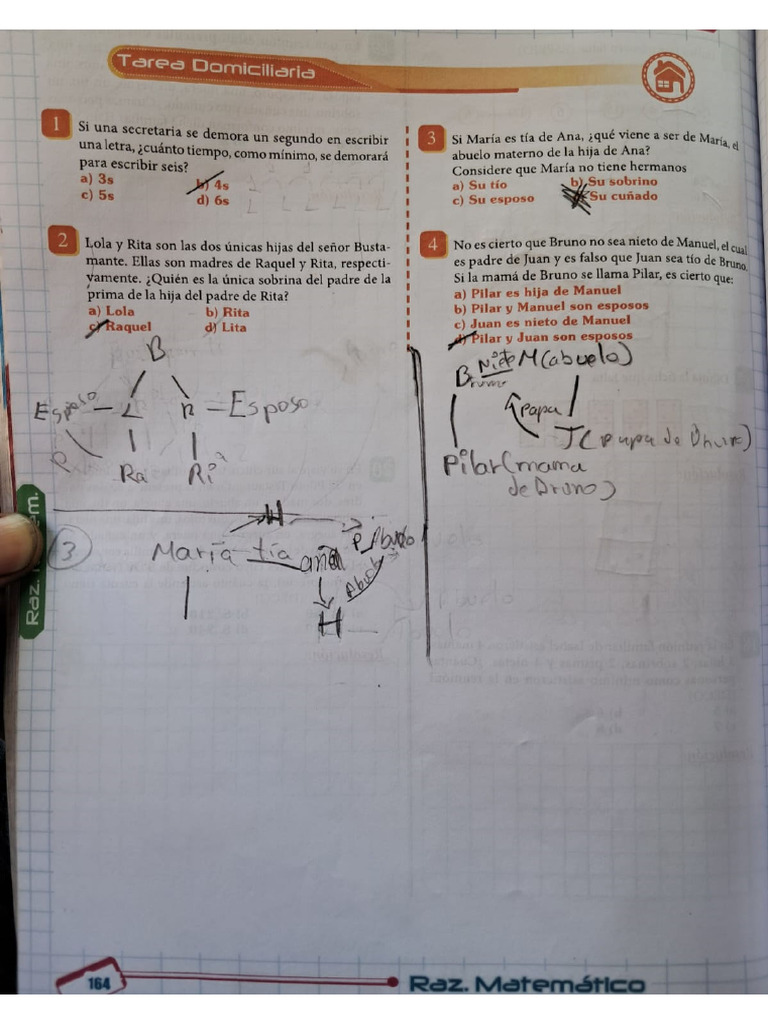 Tarea Domiciliaria
1 Si una secretaria se demora un segundo en escribir
una letra, ¿cuánto tiempo, como mínimo, se demorará
para escribir seis?
a) 3s b) 4s
c) 5s d) 6s
2 Lola y Rita son las dos únicas hijas del señor Busta-
mante. Ellas son madres de Raquel y Rita, respecti-
vamente. ¿Quién es la única sobrina del padre de la
prima de la hija del padre de Rita?
a) Lola b) Rita
c) Raquel d) Lita
B
Esposo – L R – Esposo
R Ra Ri
3 Si María es tía de Ana, ¿qué viene a ser de María, el
abuelo materno de la hija de Ana?
Considere que María no tiene hermanos
a) Su tío b) Su sobrino
c) Su esposo d) Su cuñado
4 No es cierto que Bruno no sea nieto de Manuel, el cual
es padre de Juan y es falso que Juan sea tío de Bruno.
Si la mamá de Bruno se llama Pilar, es cierto que:
a) Pilar es hija de Manuel
b) Pilar y Manuel son esposos
c) Juan es nieto de Manuel
d) Pilar y Juan son esposos
B Nieto M (abuelo)
Bruno
papa
J (papa de Bruno)
Pilar (mama
de Bruno)
H
3 María tía ana P Abuelo
Abuelo
H
Raz. em.
164
Raz. Matemático